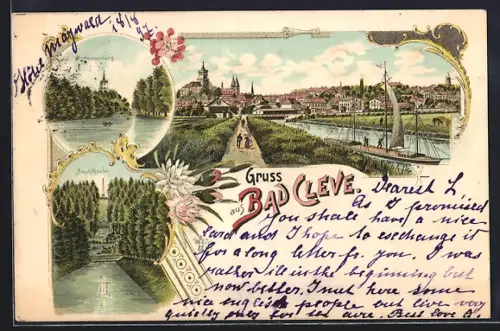 Hôtel Maywald 18/8 97.
Amphitheater
Gruss
aus BAD CLEVE.
Dearest L
As I promised
you shall have a nice
card and I hope to exchange it
for a long letter fr. you. I was
rather ill in the beginning but
now better. I met here some
nice english people but live very
quietly ones for six are. Best love